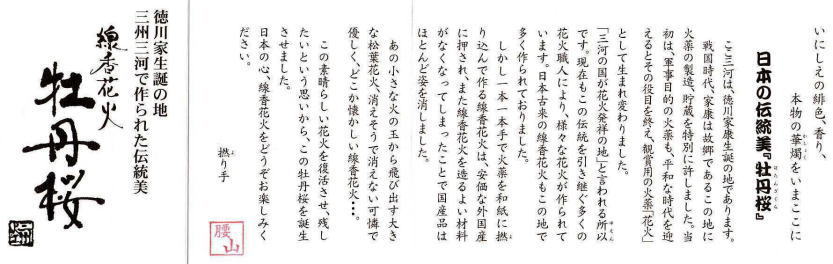 いにしえの緋色、香り、
本物の華燭をいまここに
かしょく
日本の伝統美『牡丹桜』
ぼたんざくら
ここ三河は、徳川家康生誕の地であります。
戦国時代、家康は故郷であるこの地に
火薬の製造、貯蔵を特別に許しました。当
初は、軍事目的の火薬も、平和な時代を迎
えるとその役目を終え、観賞用の火薬「花火」
として生まれ変わりました。
「三河の国が花火発祥の地」と言われる所以
ゆえん
です。現在もこの伝統を引き継ぐ多くの
花火職人により、様々な花火が作られて
います。日本古来の線香花火もこの地で
多く作られておりました。
しかし一本一本手で火薬を和紙に撚
よ
り込んで作る線香花火は、安価な外国産
に押され、また線香花火を造るよい材料
がなくなってしまったことで国産品は
ほとんど姿を消しました。
あの小さな火の玉から飛び出す大き
な松葉花火、消えそうで消えない可憐で
優しく、どこか懐かしい線香花火・・・。
この素晴らしい花火を復活させ、残し
たいという思いから、この牡丹桜を誕生
させました。
日本の心、線香花火をどうぞお楽しみく
ださい。
撚り手
よ
腰山
徳川家生誕の地
三州三河で作られた伝統美
線香花火
牡丹桜